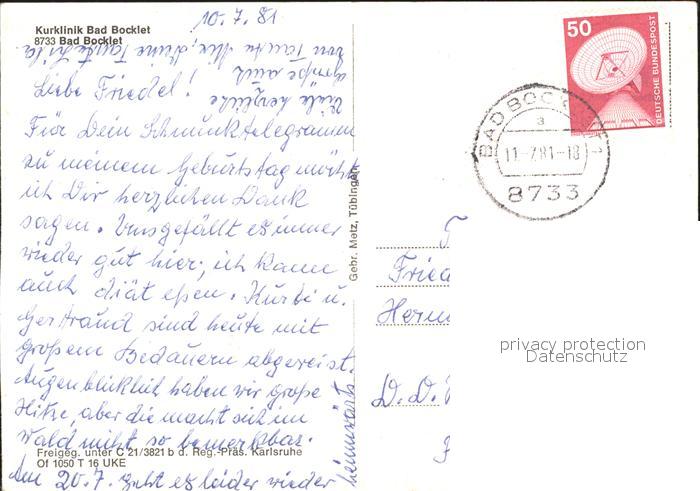 Kurklinik Bad Bocklet
8733 Bad Bocklet
10.7.81
Liebe Friedel!
Für Dein Schmucktelegramm
zu meinem Geburtstag möchte
ich Dir herzlichen Dank
sagen. Uns gefällt es immer
wieder gut hier, ich kann
auch diät eßen. Kurbi u.
Gertraud sind heute mit
großem Bedauern abgereist.
Augenblicklich haben wir große
Hitze, aber die macht sich im
Wald nicht so bemerkbar.
Am 20.7. geht es leider wieder
heimwärts.
Viele herzliche
Grüße auch
von Tante Mie, Deine Tante
Freigeg. unter C 21/3821 b d. Reg.-Präs. Karlsruhe
Of 1050 T 16 UKE
Gebr. Metz, Tübingen
50
DEUTSCHE BUNDESPOST
BAD BOCKLET
a
11.-7.81-18
8733
Fried
Herm
D.D.
privacy protection
Datenschutz